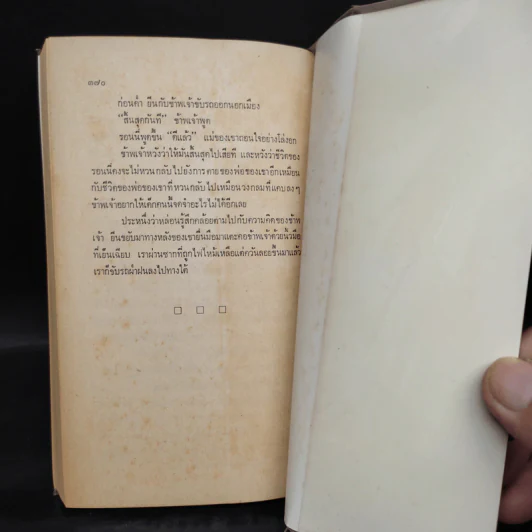 ๓๗๐
ก่อนค่ำ ยีนกับข้าพเจ้าขับรถออกนอกเมือง
"สิ้นสุดกันที" ข้าพเจ้าพูด
รอนนี่พูดขึ้น "ดีแล้ว" แม่ของเขาถอนใจอย่างโล่งอก
ข้าพเจ้าหวังว่าให้มันสิ้นสุดไปเสียที และหวังว่าชีวิตของ
รอนนี่คงจะไม่หวนกลับไปยังการตายของพ่อของเขาอีกเหมือน
กับชีวิตของพ่อของเขาที่หวนกลับไปเหมือนวงกลมที่แคบลงๆ
ข้าพเจ้าอยากให้เด็กคนนี้จดจำอะไรไม่ได้อีกเลย
ประหนึ่งว่าหล่อนรู้สึกคล้อยตามไปกับความคิดของข้าพ
เจ้า ยีนขยับมาทางหลังของเขายื่นมือมาแตะคอข้าพเจ้าด้วยนิ้วมือ
ที่เย็นเฉียบ เราผ่านซากที่ถูกไฟไหม้เหลือแต่ควันลอยขึ้นมาแล้ว
เราก็ขับรถฝ่าฝนลงไปทางใต้